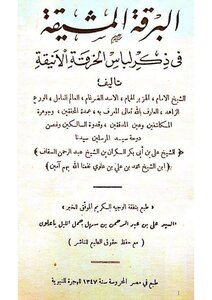 البرقة المشيقة
في ذكر لباس الخرقة الأنيقة
تأليف
الشيخ الإمام ، الحبر الهمام ، الاسد الضرغام ، العالم العامل ، الورع
الزاهد ، العارف بالله تعالى المعروف به ، عمدة المحققين ، وجوهرة
المكاشفين وعين المدققين ، وقدوة السالكين وغصن
دوحة سيد المرسلين سيدنا
﴿ الشيخ على بن أبى بكر السكران بن الشيخ عبد الرحمن السقاف ﴾
( ابن الشيخ محمد بن على بن علوى نفعنا الله بهم آمين )
« طبع بنفقة الوجيه الكريم الموفق للخير »
السيد على بن عبد الرحمن بن سهل جمل الليل باعلوى
( مع حفظ حقوق الطبع للناشر )
طبع في مصر المحروسة سنة ١٣٤٧ للهجرة النبوية